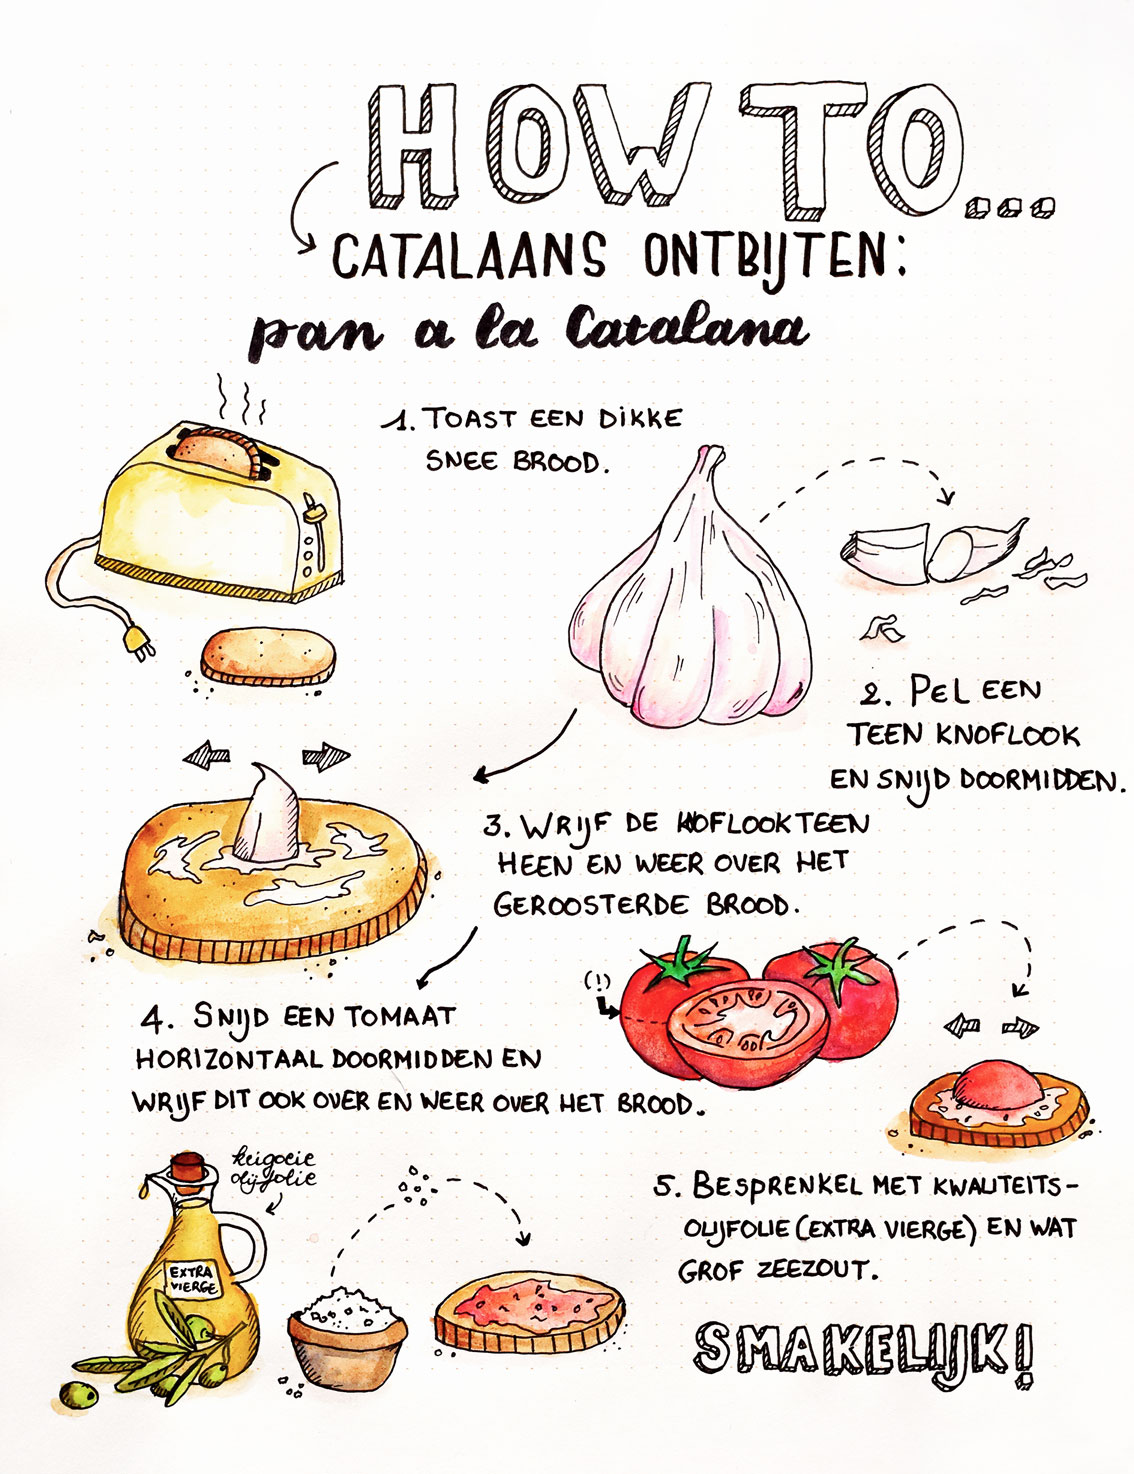 HOW TO...
CATALAANS ONTBIJTEN:
pan a la Catalana
1. TOAST EEN DIKKE
SNEE BROOD.
2. PEL EEN
TEEN KNOFLOOK
EN SNIJD DOORMIDDEN.
3. WRIJF DE KNOFLOOKTEEN
HEEN EN WEER OVER HET
GEROOSTERDE BROOD.
(!)
4. SNIJD EEN TOMAAT
HORIZONTAAL DOORMIDDEN EN
WRIJF DIT OOK OVER EN WEER OVER HET BROOD.
keigoeie
olijfolie
EXTRA
VIERGE
5. BESPRENKEL MET KWALITEITS-
OLIJFOLIE (EXTRA VIERGE) EN WAT
GROF ZEEZOUT.
SMAKELIJK!